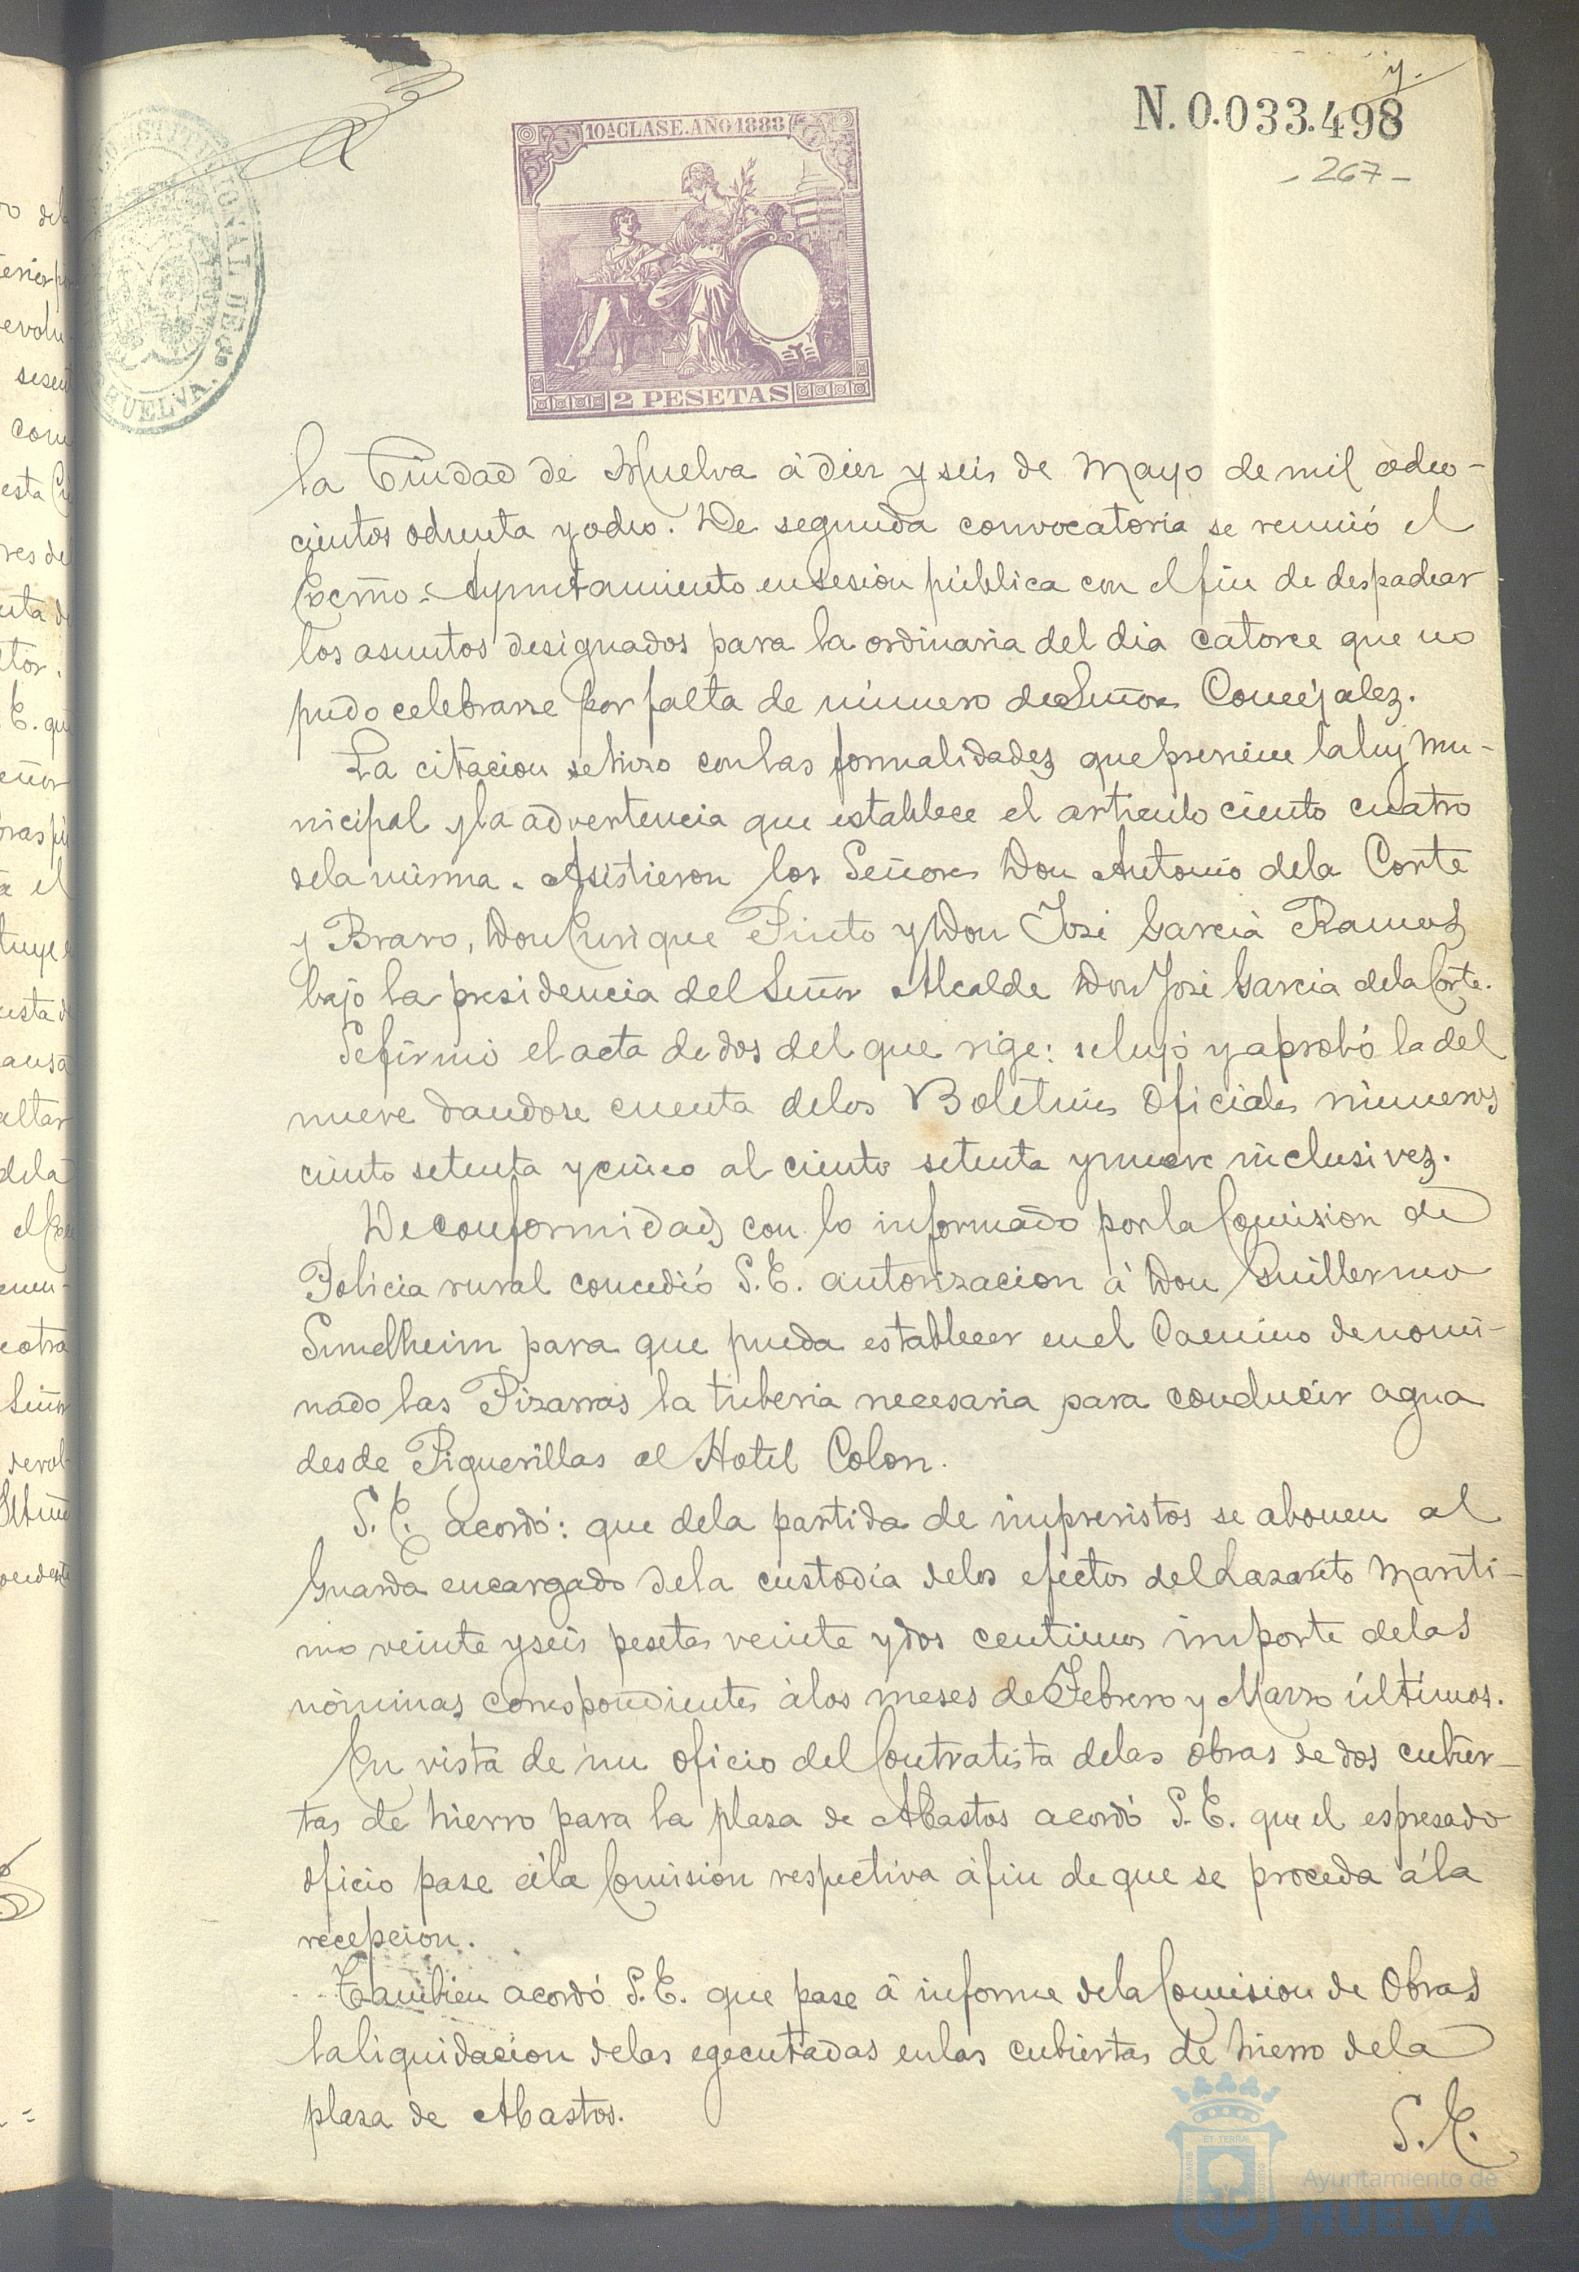 y.
N. 0.033.498
- 267 -
10ª CLASE. AÑO 1888
2 PESETAS
CONSTITUCIONAL DE
HUELVA.
la Ciudad de Huelva á diez y seis de Mayo de mil ocho-
cientos ochenta y ocho. De segunda convocatoria se reunió el
Excmo. Ayuntamiento en sesion pública con el fin de despachar
los asuntos designados para la ordinaria del dia catorce que no
pudo celebrarse por falta de número de Señores Concejales.
La citacion se hizo con las formalidades que previene la ley Mu-
nicipal y la advertencia que establece el articulo ciento cuatro
de la misma. Asistieron los Señores Don Antonio de la Corte
y Bravo, Don Enrique Pinto y Don José Garcia Ramos
bajo la presidencia del Señor Alcalde Don José Garcia de la Corte.
Se firmó el acta de dos del que rige: se leyó y aprobó la del
nueve dandose cuenta de los Boletines Oficiales números
ciento setenta y cinco al ciento setenta y nueve inclusives.
De conformidad con lo informado por la Comision de
Policia rural concedió S. E. autorizacion á Don Guillermo
Sundheim para que pueda establecer en el Camino denomi-
nado las Pizarras la tuberia necesaria para conducir agua
desde Piguerillas al Hotel Colon.
S. E. acordó: que de la partida de imprevistos se abonen al
Guarda encargado de la custodia de los efectos del Lazareto Maríti-
mo veinte y seis pesetas veinte y dos centimos importe de las
nóminas correspondientes á los meses de Febrero y Marzo últimos.
En vista de un oficio del Contratista de las obras de dos cubier-
tas de hierro para la plaza de Abastos acordó S. E. que el espresado
oficio pase á la Comision respectiva á fin de que se proceda á la
recepcion.
Tambien acordó S. E. que pase á informe de la Comision de Obras
la liquidacion de las egecutadas en las cubiertas de hierro de la
plaza de Abastos.
S. E.
Ayuntamiento de
HUELVA